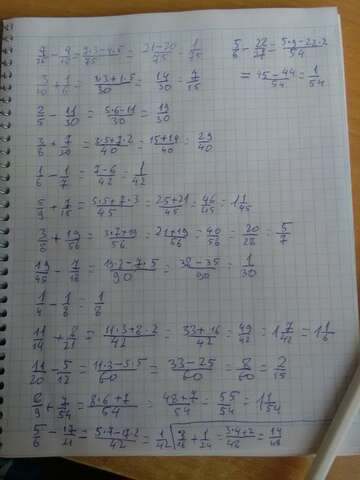 7/25 - 4/15 = 7·3-4·5/75 = 21-20/75 = 1/75
3/10 + 1/6 = 3·3+1·5/30 = 14/30 = 7/15
2/5 - 11/30 = 5·6-11/30 = 19/30
3/8 + 7/20 = 3·5+7·2/40 = 15+14/40 = 29/40
1/6 - 1/7 = 7-6/42 = 1/42
5/9 + 7/15 = 5·5+7·3/45 = 25+21/45 = 46/45 = 1 1/45
3/8 + 19/56 = 3·7+19/56 = 21+19/56 = 40/56 = 20/28 = 5/7
19/45 - 7/18 = 19·2-7·5/90 = 38-35/90 = 1/30
1/4 - 1/8 = 1/8
11/14 + 8/21 = 11·3+8·2/42 = 33+16/42 = 49/42 = 1 7/42 = 1 1/6
11/20 - 5/12 = 11·3-5·5/60 = 33-25/60 = 8/60 = 2/15
8/9 + 7/54 = 8·6+7/54 = 48+7/54 = 55/54 = 1 1/54
5/6 - 17/21 = 5·7-17·2/42 = 1/42
+ 1/24 = 3·4+2/48 = 14/48
5/6 - 22/27 = 5·9-22·2/54
= 45-44/54 = 1/54